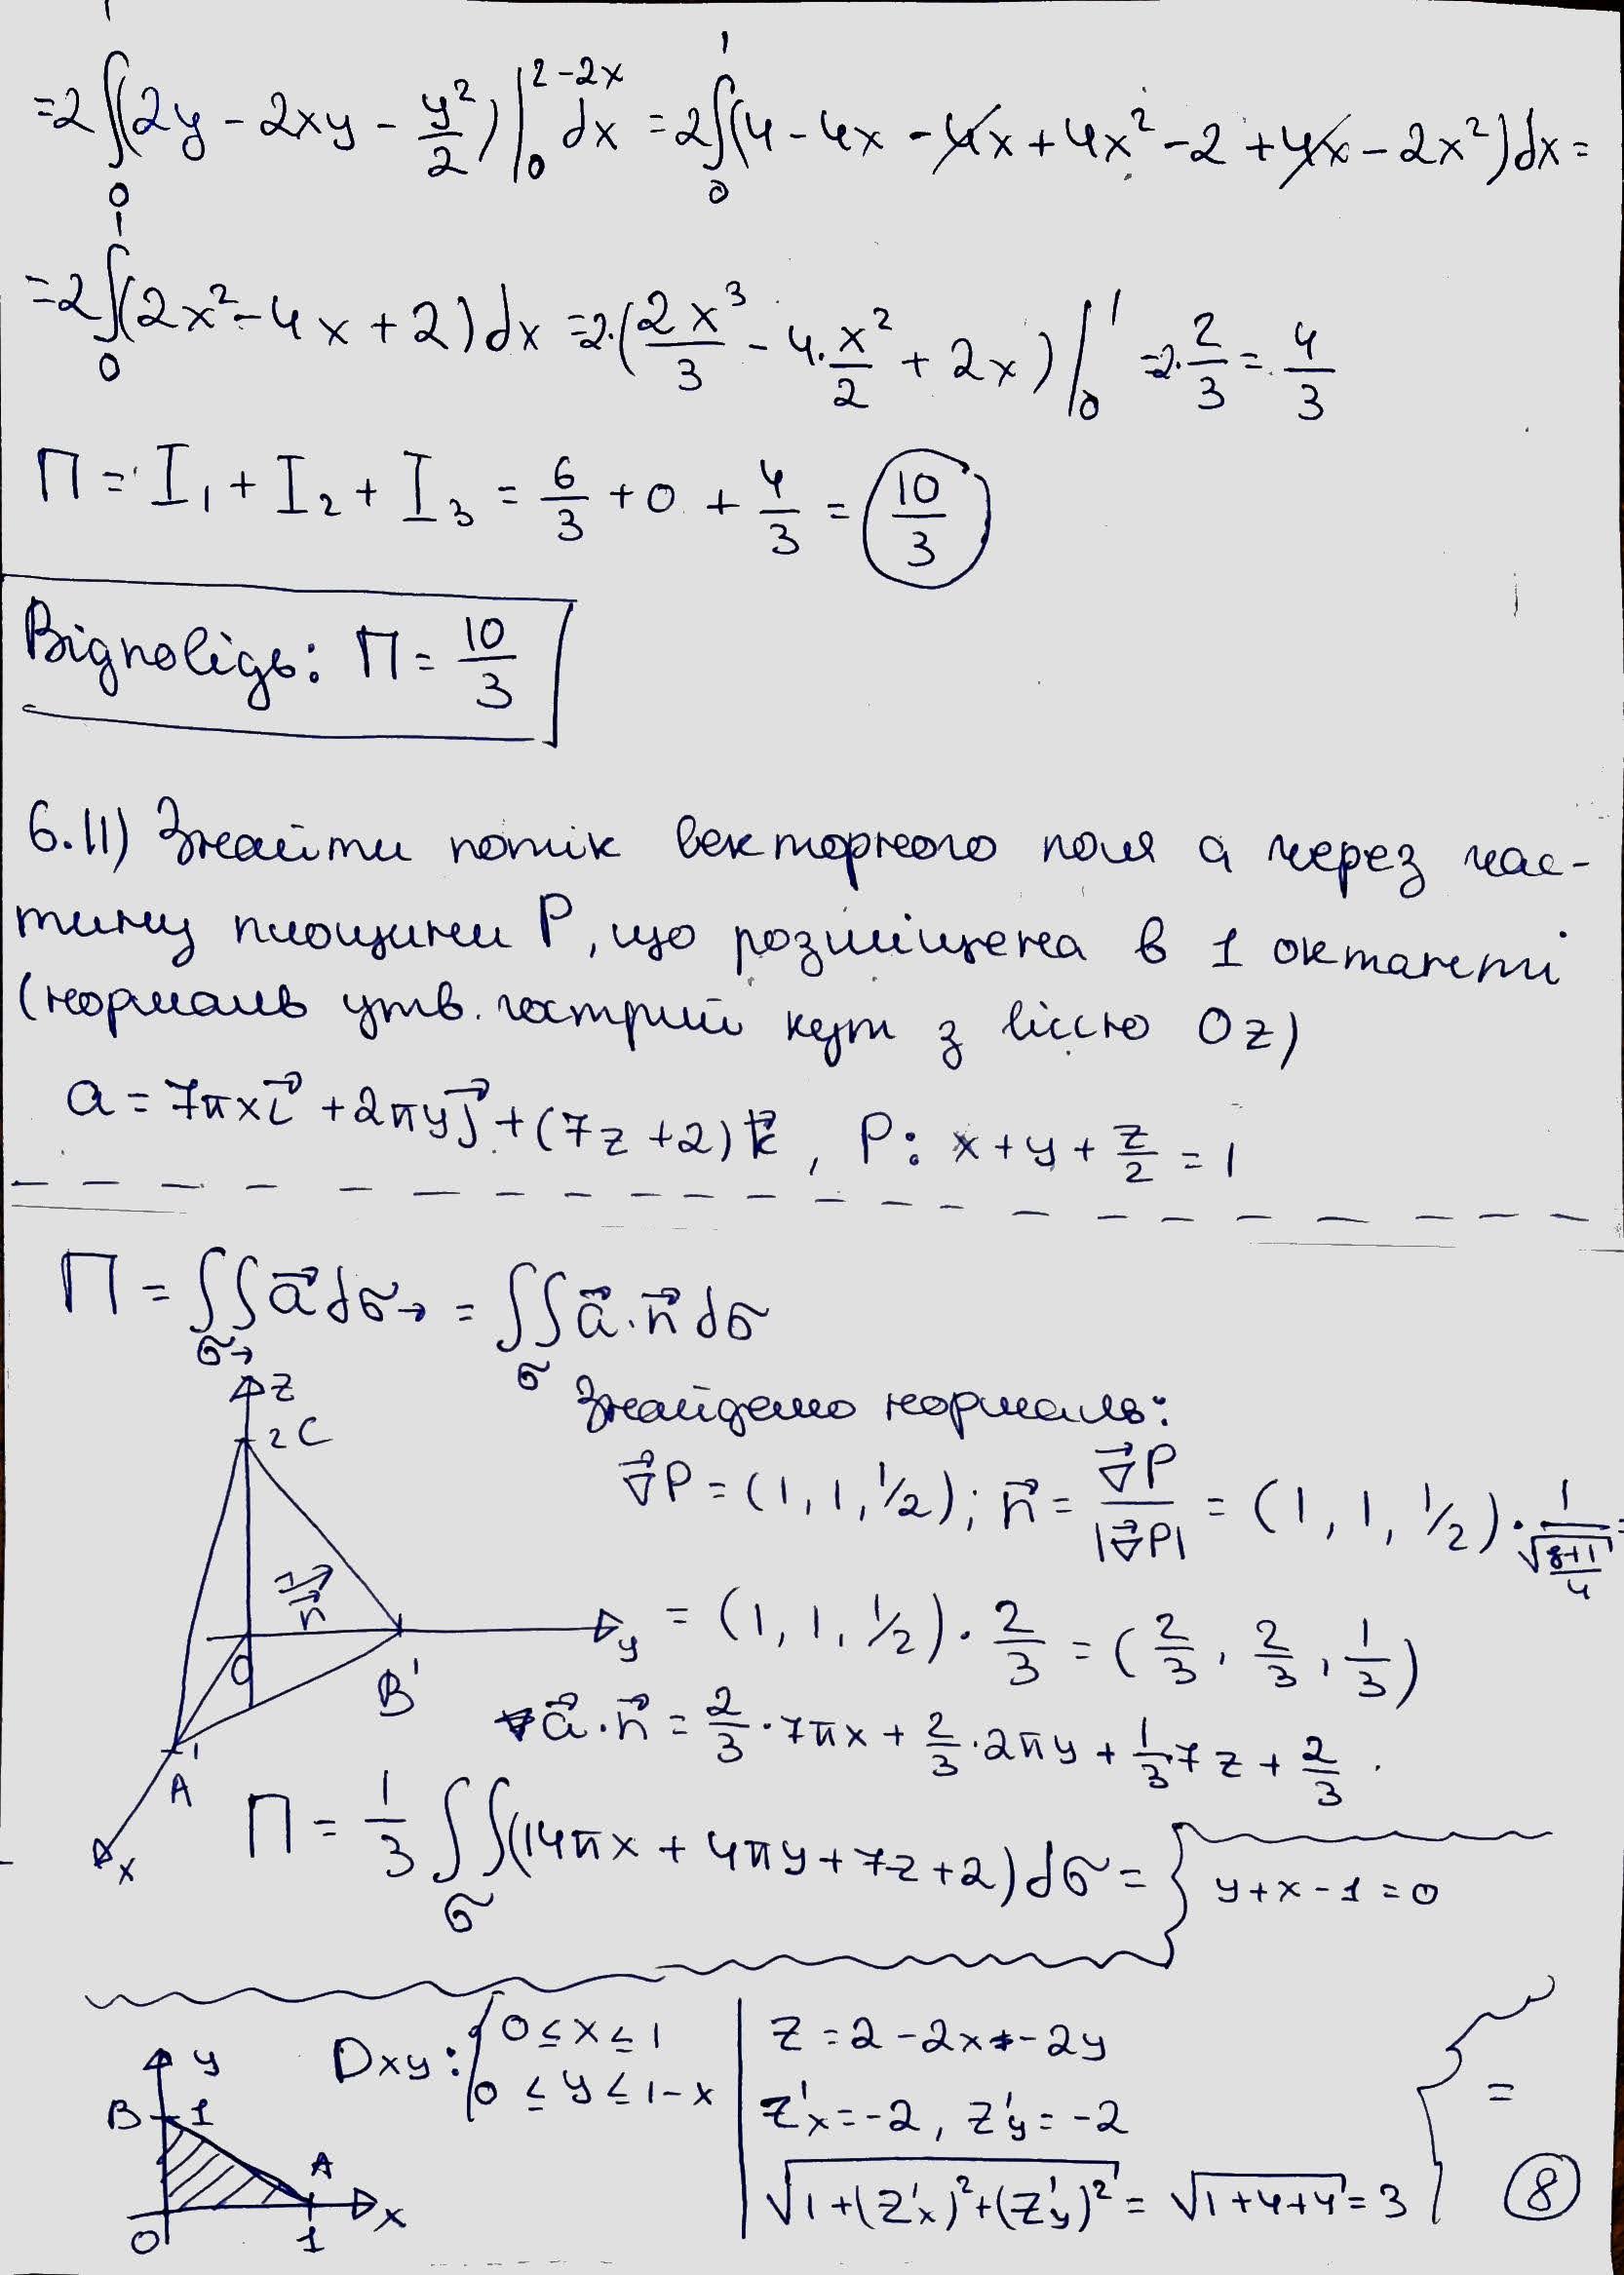 =2∫₀¹(2y - 2xy - y²/2)|₀^(2-2x) dx = 2∫₀¹(4 - 4x - 4x + 4x² - 2 + 4x - 2x²)dx =
=2∫₀¹(2x² - 4x + 2)dx =2·(2x³/3 - 4·x²/2 + 2x)|₀¹ =2·2/3 = 4/3
П = I₁ + I₂ + I₃ = 6/3 + 0 + 4/3 = 10/3
Відповідь: П = 10/3
6.11) Знайти потік векторного поля a через час-
тину площини P, що розміщена в 1 октанті
(нормаль утв. гострий кут з віссю Oz)
a = 7πx i⃗ + 2πy j⃗ + (7z + 2) k⃗, P: x + y + z/2 = 1
П = ∬_σ→ a⃗ dσ→ = ∬_σ a⃗·n⃗ dσ
Знайдемо нормаль:
∇⃗P = (1, 1, 1/2); n⃗ = ∇⃗P/|∇⃗P| = (1, 1, 1/2)·1/√((8+1)/4) =
= (1, 1, 1/2)·2/3 = (2/3, 2/3, 1/3)
z
2 C
n⃗
O
y
B 1
1
A
x
a⃗·n⃗ = 2/3·7πx + 2/3·2πy + 1/3·7z + 2/3.
П = 1/3 ∬_σ (14πx + 4πy + 7z + 2)dσ = { y + x - 1 = 0
y
B 1
A
O 1 x
Dxy: { 0 ≤ x ≤ 1
0 ≤ y ≤ 1-x
z = 2 - 2x - 2y
z'x = -2, z'y = -2
√(1 + (z'x)² + (z'y)²) = √(1+4+4) = 3 } =
8